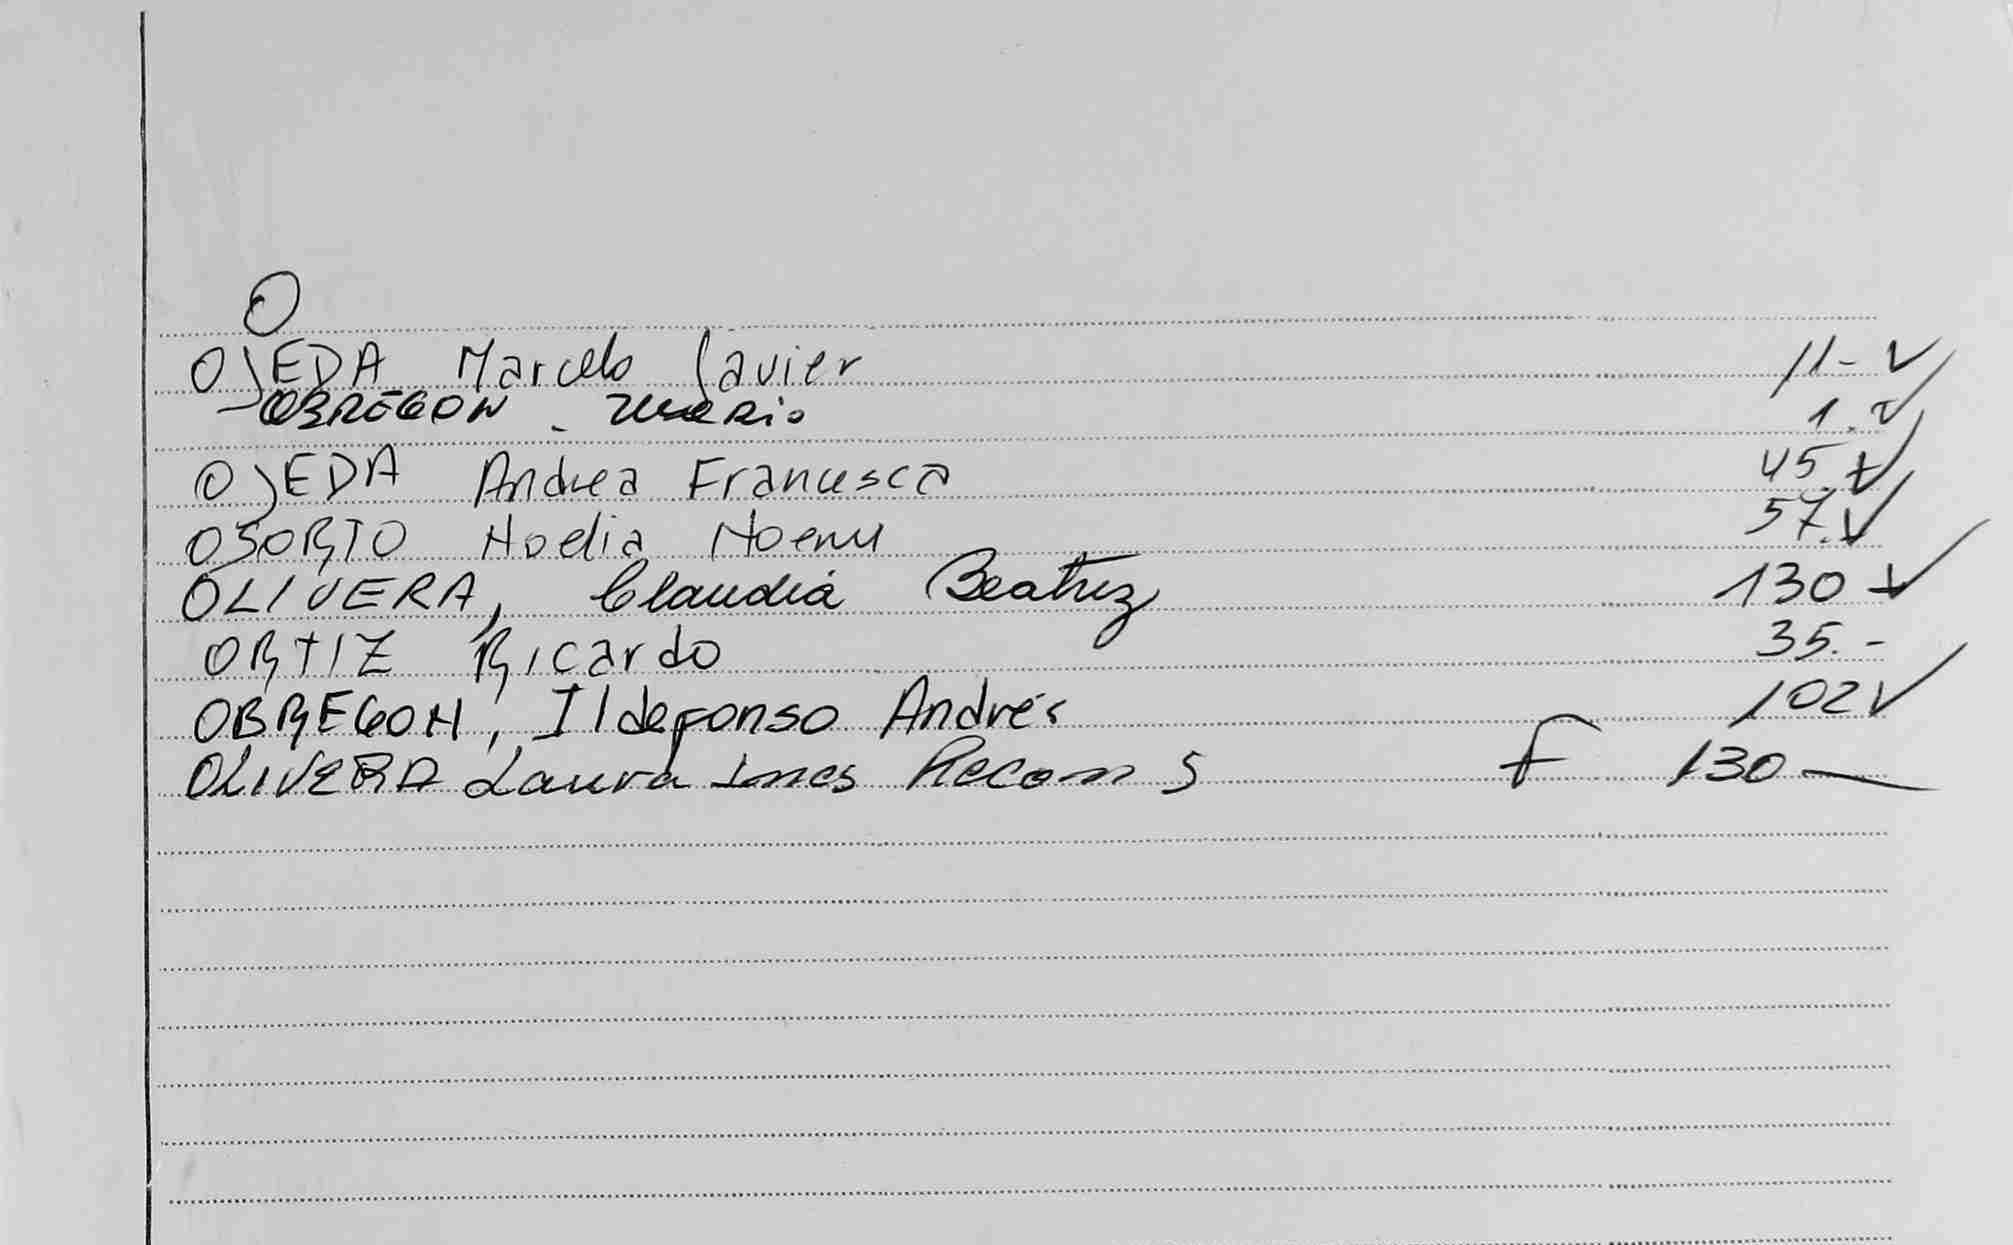 O
OJEDA Marcelo Javier 11.- ✓
- OBREGON - Mario 1. ✓
OJEDA Andrea Francesca 45. ✓
OSORTO Noelia Noemi 57. ✓
OLIVERA, Claudia Beatriz 130 ✓
ORTIZ Ricardo 35.-
OBREGON, Ildefonso Andrés 102 ✓
OLIVERA Laura Ines f 130 —